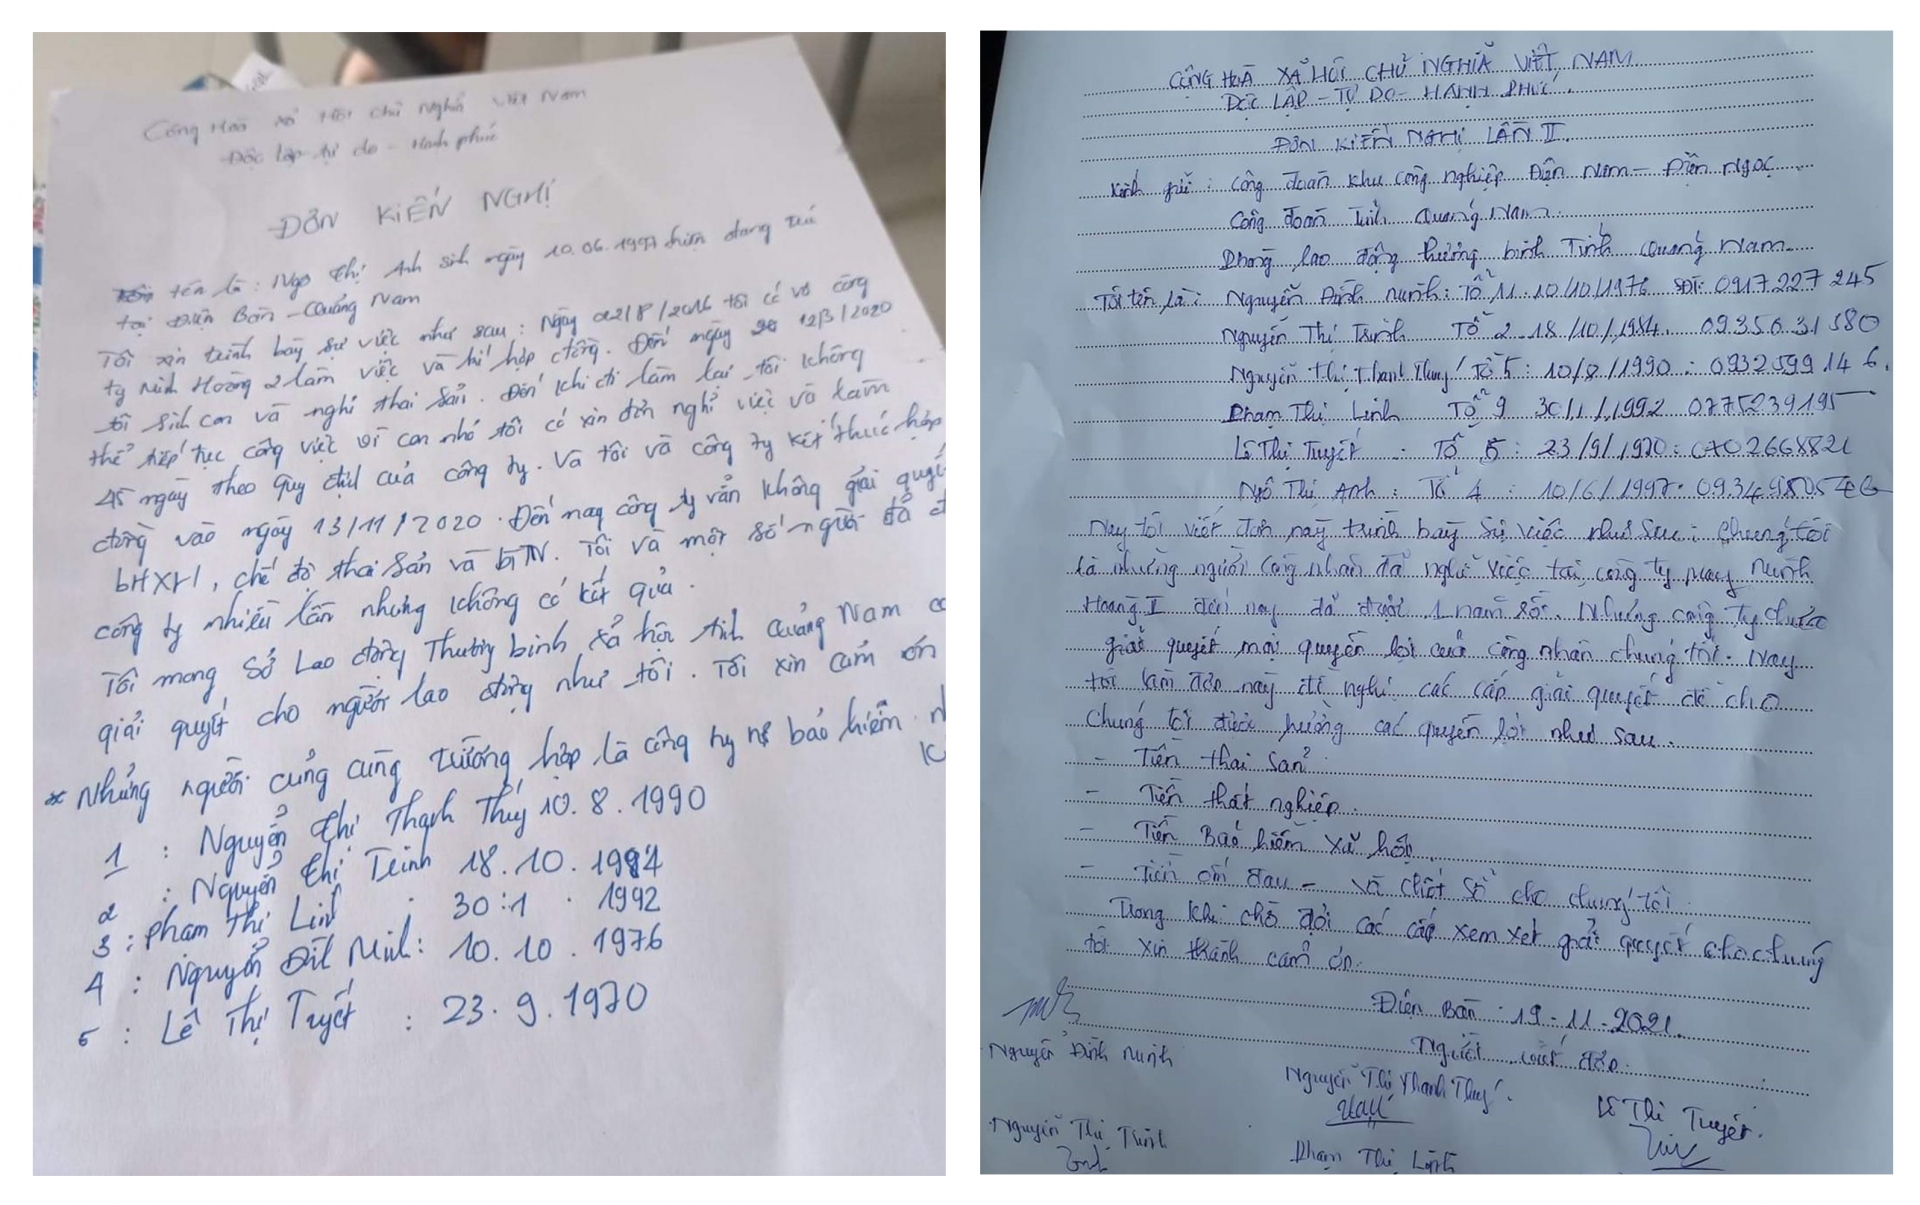 Cộng Hoà xả Hội chủ Nghĩa Việt Nam
Độc lập tự do - Hạnh phúc
ĐƠN KIẾN NGHỊ
tên là : Ngô Thị Anh sinh ngày 10.06.1997 hiện đang trú
tại Điện Bàn - Quảng Nam
Tôi xin trình bày sự việc như sau : Ngày 02/8/2016 tôi có vô công
ty Minh Hoàng 2 làm việc và kí hợp đồng. Đến ngày 12/3/2020
tôi sinh con và nghỉ thai sản. Đến khi đi làm lại tôi không
thể tiếp tục công việc vì con nhỏ tôi có xin đơn nghỉ việc và làm
45 ngày theo quy định của công ty. Và tôi và công ty kết thúc hợp
đồng vào ngày 13/11/2020. Đến nay công ty vẫn không giải quyết
bHXH, chế độ thai sản và bTN. Tôi và một số người đã
công ty nhiều lần nhưng không có kết quả.
Tôi mong Sở Lao động Thương binh xả hội tỉnh Quảng Nam
giải quyết cho người lao động như tôi. Tôi xin cảm ơn
* Những người cũng cùng trường hợp là công ty nợ bảo hiểm
1 : Nguyễn Thị Thanh Thúy 10.8.1990
2 : Nguyễn Thị Trinh 18.10.1984
3 : Phạm Thị Linh 30:1.1992
4 : Nguyễn Đình Minh : 10.10.1976
5 : Lê Thị Tuyết : 23.9.1970
CỘNG HOÀ XÃ HỘI CHỦ NGHĨA VIỆT NAM
ĐỘC LẬP - TỰ DO - HẠNH PHÚC.
ĐƠN KIẾN NGHỊ LẦN II.
Kính gửi : Công đoàn khu công nghiệp Điện Nam - Điện Ngọc
Công đoàn Tỉnh Quảng Nam.
Phòng lao động thương binh Tỉnh Quảng Nam
Tôi tên là : Nguyễn Đình Minh : Tổ 11 : 10/10/1976 SĐT: 0917227245
Nguyễn Thị Trinh Tổ 2 18/10/1984. 0935631580
Nguyễn Thị Thanh Thuý Tổ 5 : 10/8/1990 : 0932599146.
Phạm Thị Linh Tổ 9 30/1/1992 0775239195
Lê Thị Tuyết . Tổ 5 : 23/9/1970 :
Ngô Thị Anh : Tổ 4 : 10/6/1997.
Nay tôi viết đơn này trình bày sự việc như sau : Chúng tôi
là những người công nhân đã nghỉ việc tại công ty may Minh
Hoàng II đến nay đã được 1 năm số. Nhưng công ty chưa
giải quyết mọi quyền lợi của công nhân chúng tôi. Nay
tôi làm đơn này đề nghị các cấp giải quyết để cho
chúng tôi được hưởng các quyền lợi như sau.
- Tiền thai sản
- Tiền thất nghiệp.
- Tiền Bảo hiểm xã hội.
- Tiền ốm đau - và chốt sổ cho chúng tôi
Trong khi chờ đợi các cấp xem xét giải quyết cho chúng
tôi xin thành cảm ơn.
Điện Bàn . 19-11-2021.
Người viết đơn.
Nguyễn Đình Minh
Nguyễn Thị Thanh Thuý.
Lê Thị Tuyết.
Nguyễn Thị Trinh
Phạm Thị Linh